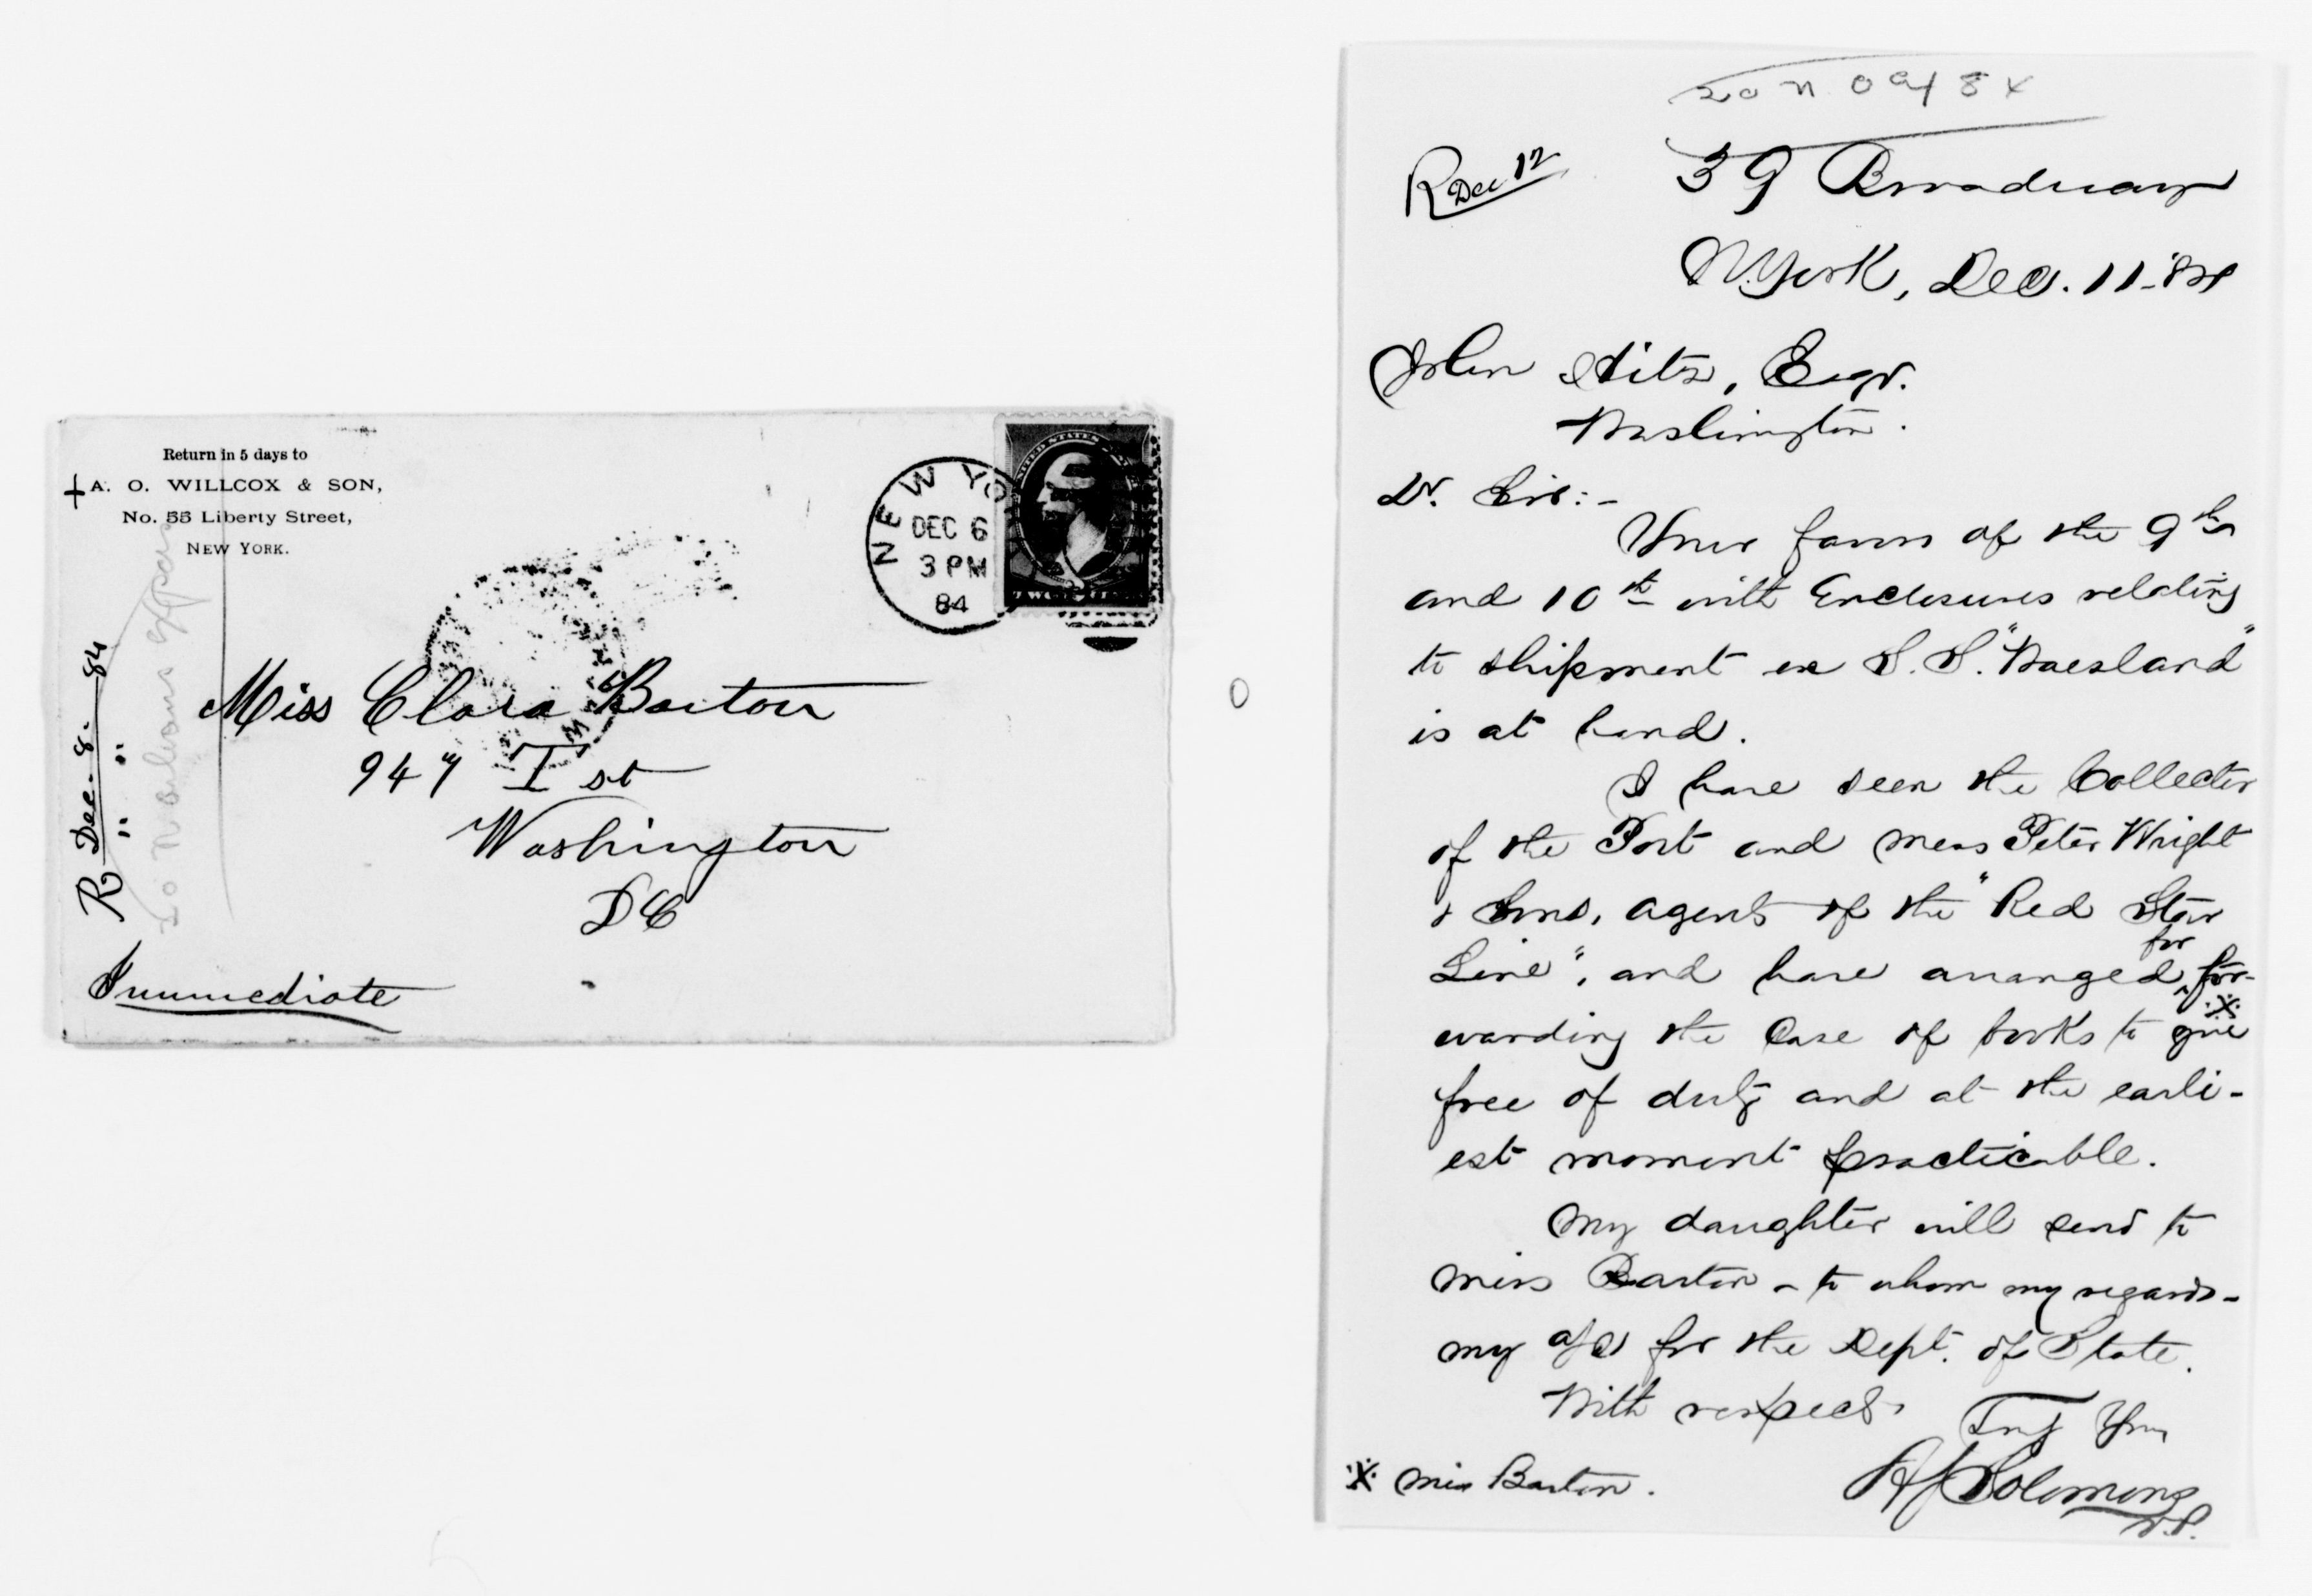 Return in 5 days to
A. O. WILLCOX & SON,
No. 55 Liberty Street,
NEW YORK.
NEW YO
DEC 6
3 PM
84
UNITED STATES
R Dec. 8. 84
" "
Miss Clara Barton
947 T st
Washington
DC
Immediate
R Dec 12
39 Broadway
N. York, Dec. 11 - '84
John Hitz, Esqr.
Washington.
Dr. Sir: -
Your favors of the 9th
and 10th with Enclosures relating
to shipment ex S. S. "Waesland"
is at hand.
I have seen the Collector
of the Port and Mess Peter Wright
& Sons, agents of the "Red Star
Line", and have arranged for for-
warding the Case of books to you ※
free of duty and at the earli-
est moment practicable.
My daughter will send to
Miss Barton - to whom my regards -
my a/c for the Dept. of State.
With respect,
Truly Yours
A S Solomons
V.P.
※ Miss Barton.